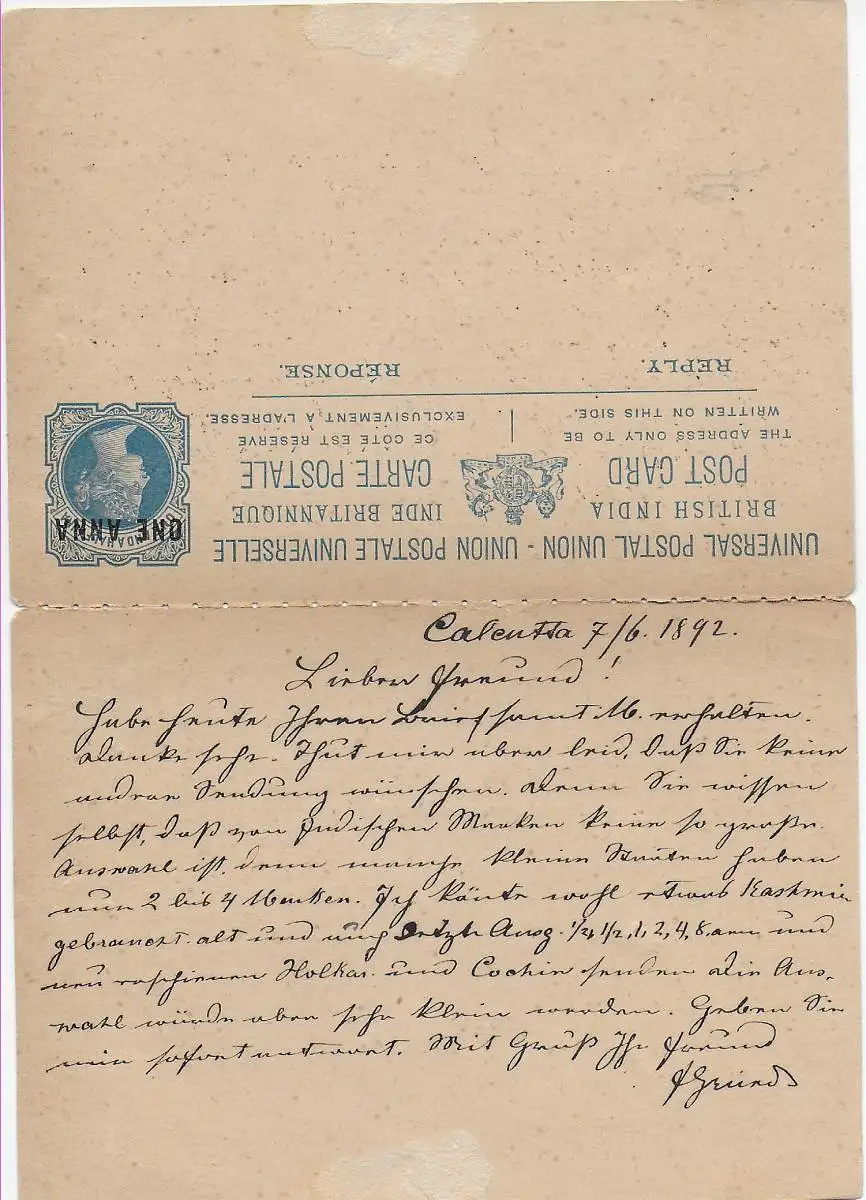 REPLY. RÉPONSE.
THE ADDRESS ONLY TO BE WRITTEN ON THIS SIDE.
CE CÔTÉ EST RÉSERVÉ EXCLUSIVEMENT À L'ADRESSE.
POST CARD CARTE POSTALE
BRITISH INDIA INDE BRITANNIQUE
UNIVERSAL POSTAL UNION - UNION POSTALE UNIVERSELLE
ONE ANNA
Calcutta 7/6. 1892.
Lieber Freund!
Habe heute Ihren Brief samt M. erhalten.
Danke sehr. Thut mir aber leid, daß Sie keine
andere Sendung wünschen. Denn Sie wissen
selbst, daß von Indischen Marken keine so große
Auswahl ist, denn manche kleine Staaten haben
nur 2 bis 4 Marken. Ich könte wohl etwas Kashmir
gebraucht. alt und auch letzte Ausg. 1/4, 1/2, 1, 2, 4, 8 ann und
neu erschienen Holkar. und Cochin senden die Aus-
wahl würde aber sehr klein werden. Geben Sie
mir sofort antwort. Mit Gruß Ihr Freund